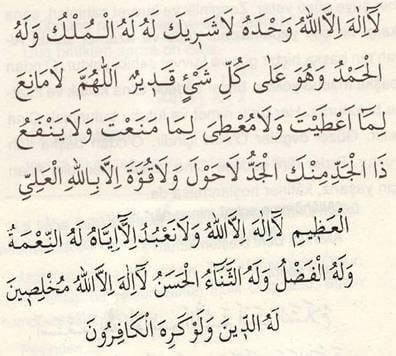 لَآ اِلٰهَ اِلَّا اللّٰهُ وَحْدَهُ لَا شَرِيكَ لَهُ لَهُ الْمُلْكُ وَلَهُ
الْحَمْدُ وَهُوَ عَلٰى كُلِّ شَيْئٍ قَدِيرٌ اَللّٰهُمَّ لَا مَانِعَ
لِمَآ اَعْطَيْتَ وَلَا مُعْطِيَ لِمَا مَنَعْتَ وَلَا يَنْفَعُ
ذَا الْجَدِّ مِنْكَ الْجَدُّ لَا حَوْلَ وَلَا قُوَّةَ اِلَّا بِاللّٰهِ الْعَلِيِّ
الْعَظِيمِ لَآ اِلٰهَ اِلَّا اللّٰهُ وَلَا نَعْبُدُ اِلَّآ اِيَّاهُ لَهُ النِّعْمَةُ
وَلَهُ الْفَضْلُ وَلَهُ الثَّنَآءُ الْحَسَنُ لَآ اِلٰهَ اِلَّا اللّٰهُ مُخْلِصِينَ
لَهُ الدِّينَ وَلَوْ كَرِهَ الْكَافِرُونَ